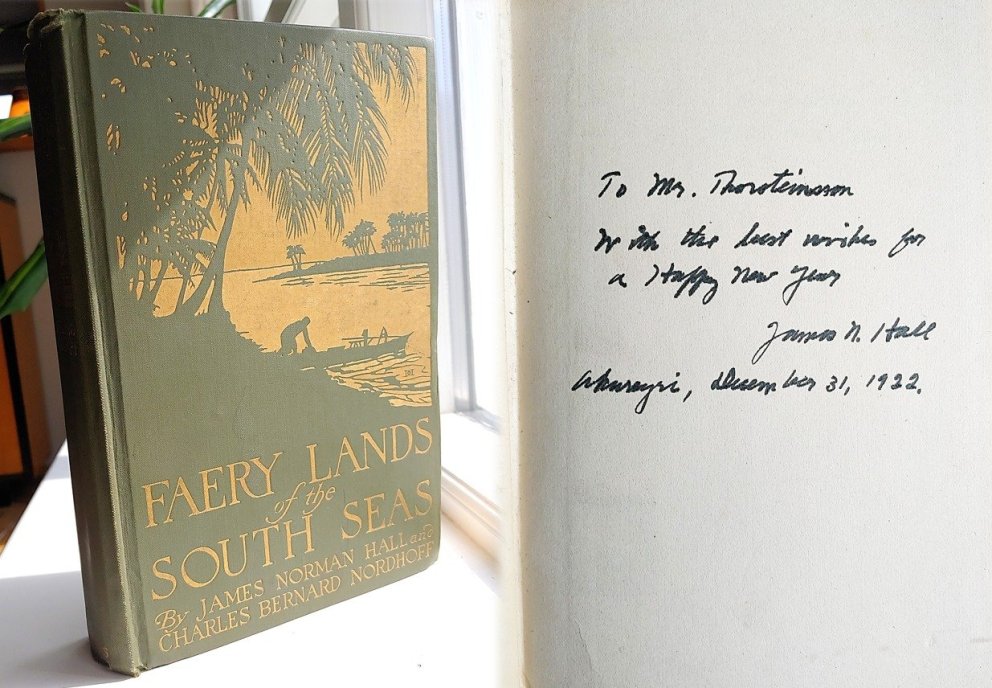 FAERY LANDS
of the
SOUTH SEAS
By JAMES NORMAN HALL and
CHARLES BERNARD NORDHOFF
To Mr. Thorsteinsson
With the best wishes for
a Happy New Year
James N. Hall
Akureyri, December 31, 1922.